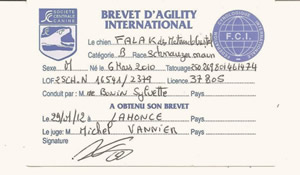 SOCIETE CENTRALE CANINE
BREVET D'AGILITY
INTERNATIONAL
F.C.I.
Le chien FALAK des
Catégorie B Race Schnauzer
Sexe M Né le 6 Mars 2010 Tatouage 250269801461474
LOF 2SCH.N 16541/2379 Licence 37805
Conduit par : M me BONIN Sylvette Pays
A OBTENU SON BREVET
Le 29/01/12 à LAHONCE Pays
Le juge : M Michel VANNIER Pays
Signature